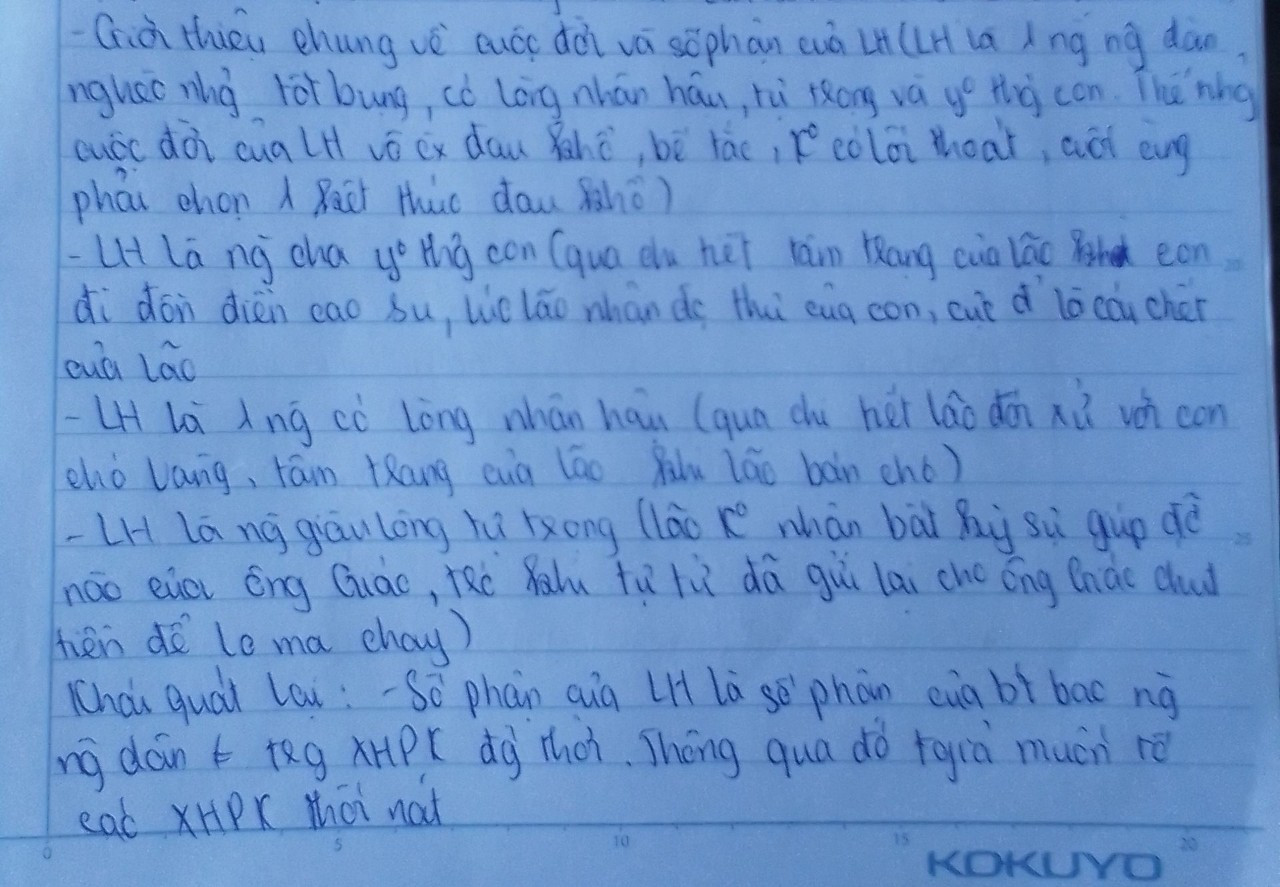 - Giới thiệu chung về cuộc đời và số phận của LH (LH là 1 ng ng dân
nghèo nhg tốt bụng, có lòng nhân hậu, tự trọng và yº thg con. Thế nhg
cuộc đời của LH vô cx đau khổ, bế tắc, Kº có lối thoát, cuối cùng
phải chọn 1 kết thúc đau khổ)
- LH là ng cha yº thg con (qua chi tiết tâm trạng của lão khi con
đi đồn điền cao su, lúc lão nhận đc thư của con, cực đ' là cái chết
của lão
- LH là 1 ng có lòng nhân hậu (qua chi tiết lão đối xử với con
chó Vàng, tâm trạng của lão khi lão bán chó)
- LH là ng giàu lòng tự trọng (lão Kº nhận bất kỳ sự giúp đỡ
nào của ông Giáo, trc khi tự tử đã gửi lại cho ông Giáo chút
tiền để lo ma chay)
Khái quát lại: - Số phận của LH là số phận của bt bao ng
ng dân t trg XHPK đg thời. Thông qua đó tgiả muốn tố
cáo XHPK thối nát
0 5 10 15 20
25
KOKUYO